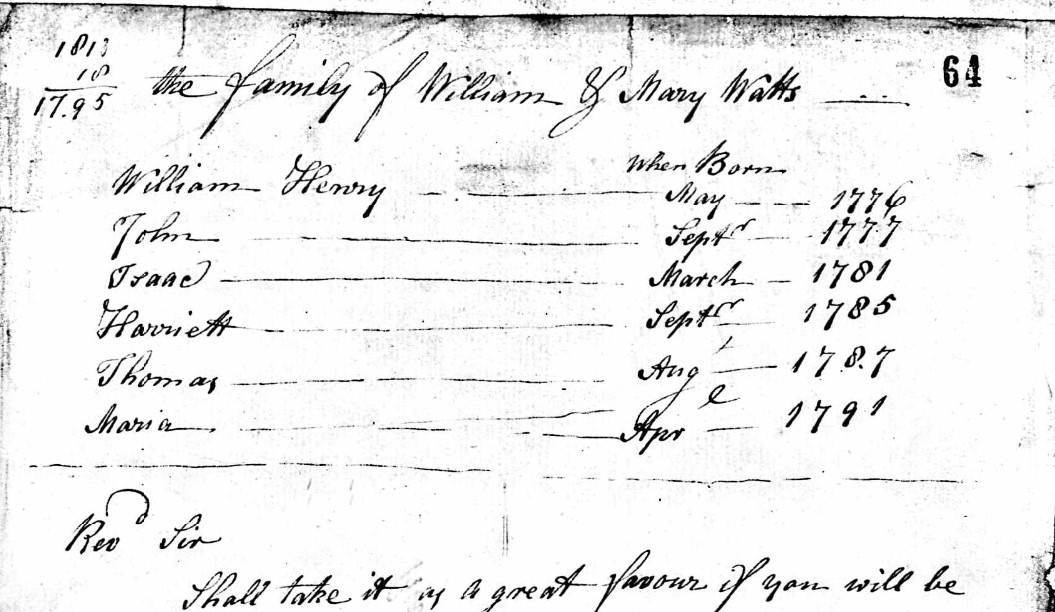 1813
18
1795
the family of William & Mary Watts
64
When Born
William Henry May 1776
John Septr 1777
Isaac March 1781
Harriett Septr 1785
Thomas Augt 1787
Maria Aprl 1791
Revd Sir
Shall take it as a great favour if you will be